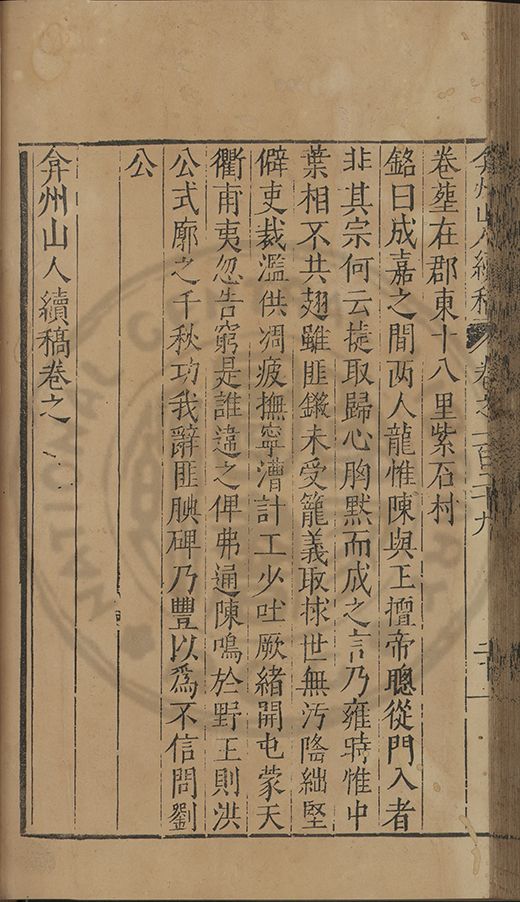 弇州山人續稿 卷之一百二十九 二十一
卷塟在郡東十八里紫石村
銘曰成嘉之間两人龍惟陳與王擅帝聰從門入者
非其宗何云㨗取歸心胸默而成之言乃雍時惟中
葉相不共翅雖匪鎩未受籠義取捄世無汚隆絀堅
僻吏裁濫供凋疲撫寧漕計工少吐厥緒開屯蒙天
衢甫夷忽告窮是誰違之俾弗通陳鳴於野王則洪
公式廓之千秋功我辭匪腆碑乃豐以爲不信問劉
公
弇州山人續稿卷之